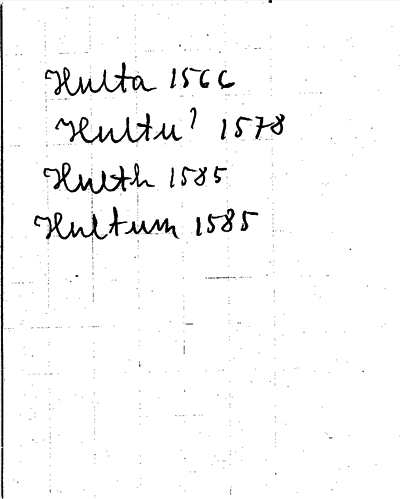 Hulta 1566
Hultu? 1578
Hulth 1585
Hultum 1585